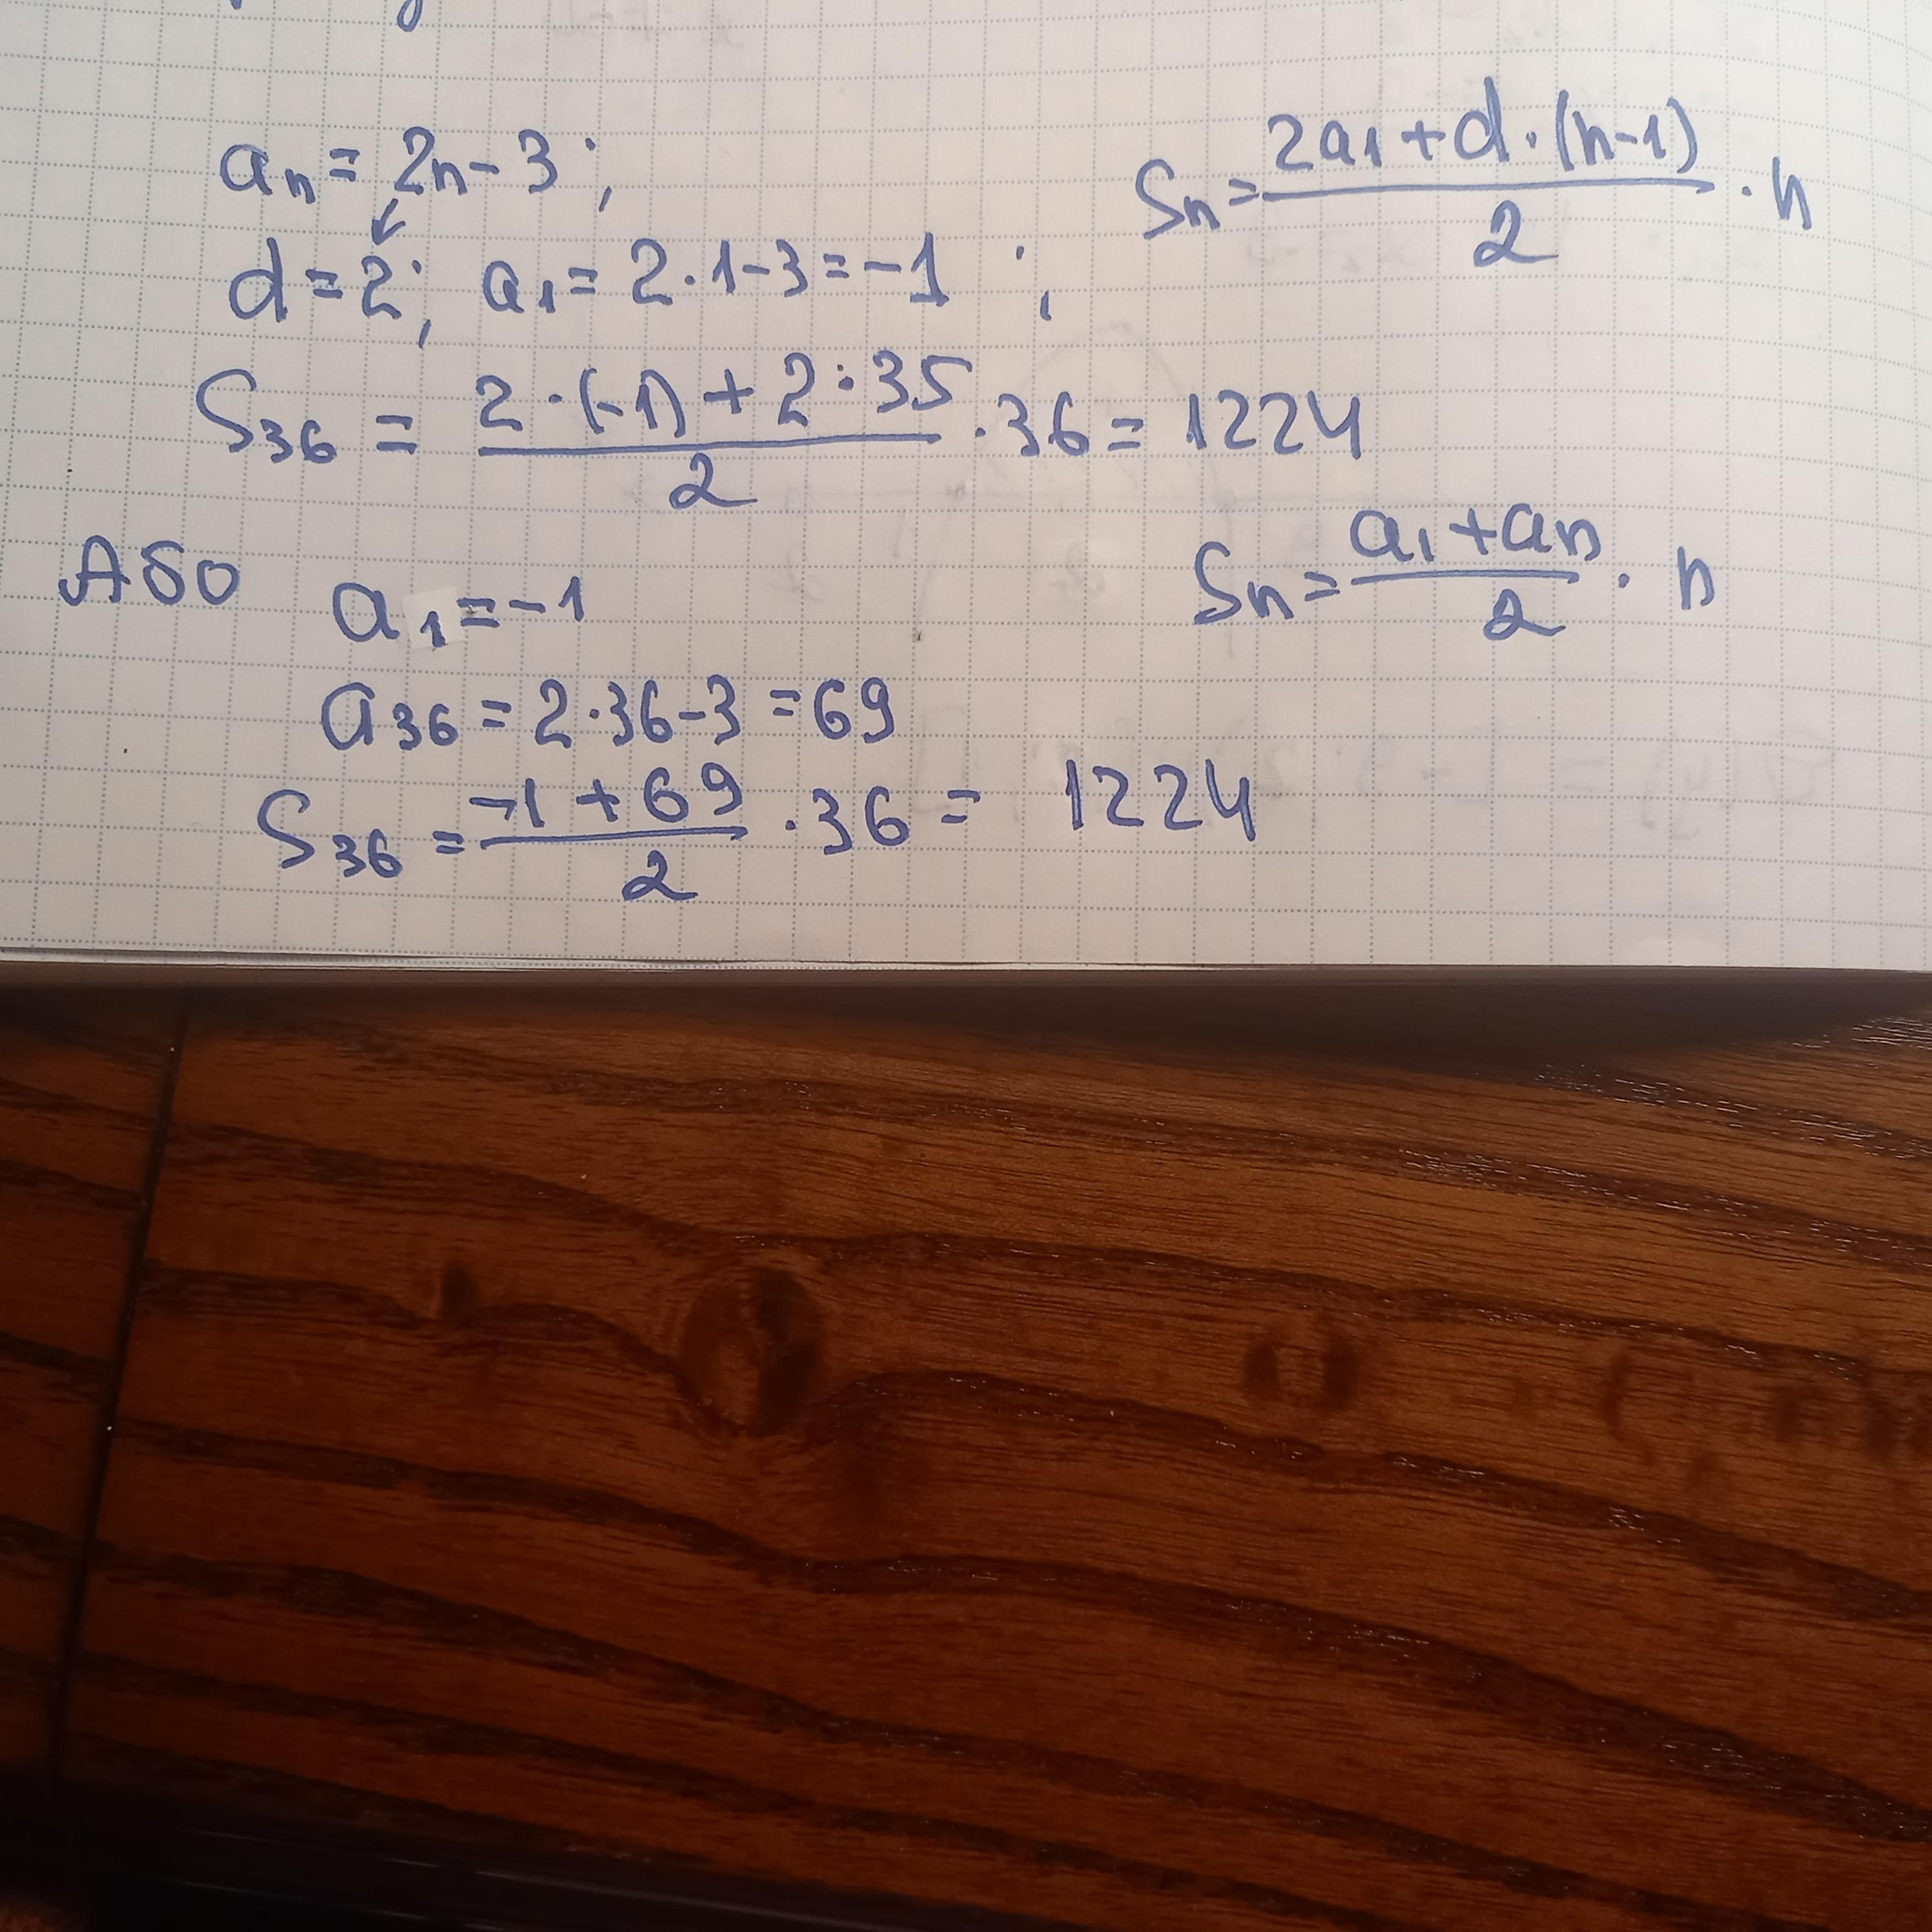 aₙ = 2n - 3;
Sₙ = (2a₁ + d · (n-1))/2 · n
d = 2; a₁ = 2 · 1 - 3 = -1 ;
S₃₆ = (2 · (-1) + 2 · 35)/2 · 36 = 1224
Або a₁ = -1
Sₙ = (a₁ + aₙ)/2 · n
a₃₆ = 2 · 36 - 3 = 69
S₃₆ = (-1 + 69)/2 · 36 = 1224